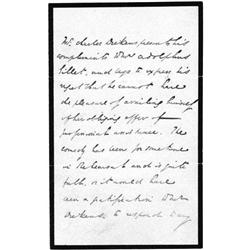 Mr. Charles Dickens presents his
compliments to Mr. Adolphus
and begs to express his
regret that he cannot have
the pleasure of availing himself
of his obliging offer of
and
comedy has been for some time
in rehearsal and is quite
full, or it would have
been a gratification to Mr.
Dickens to